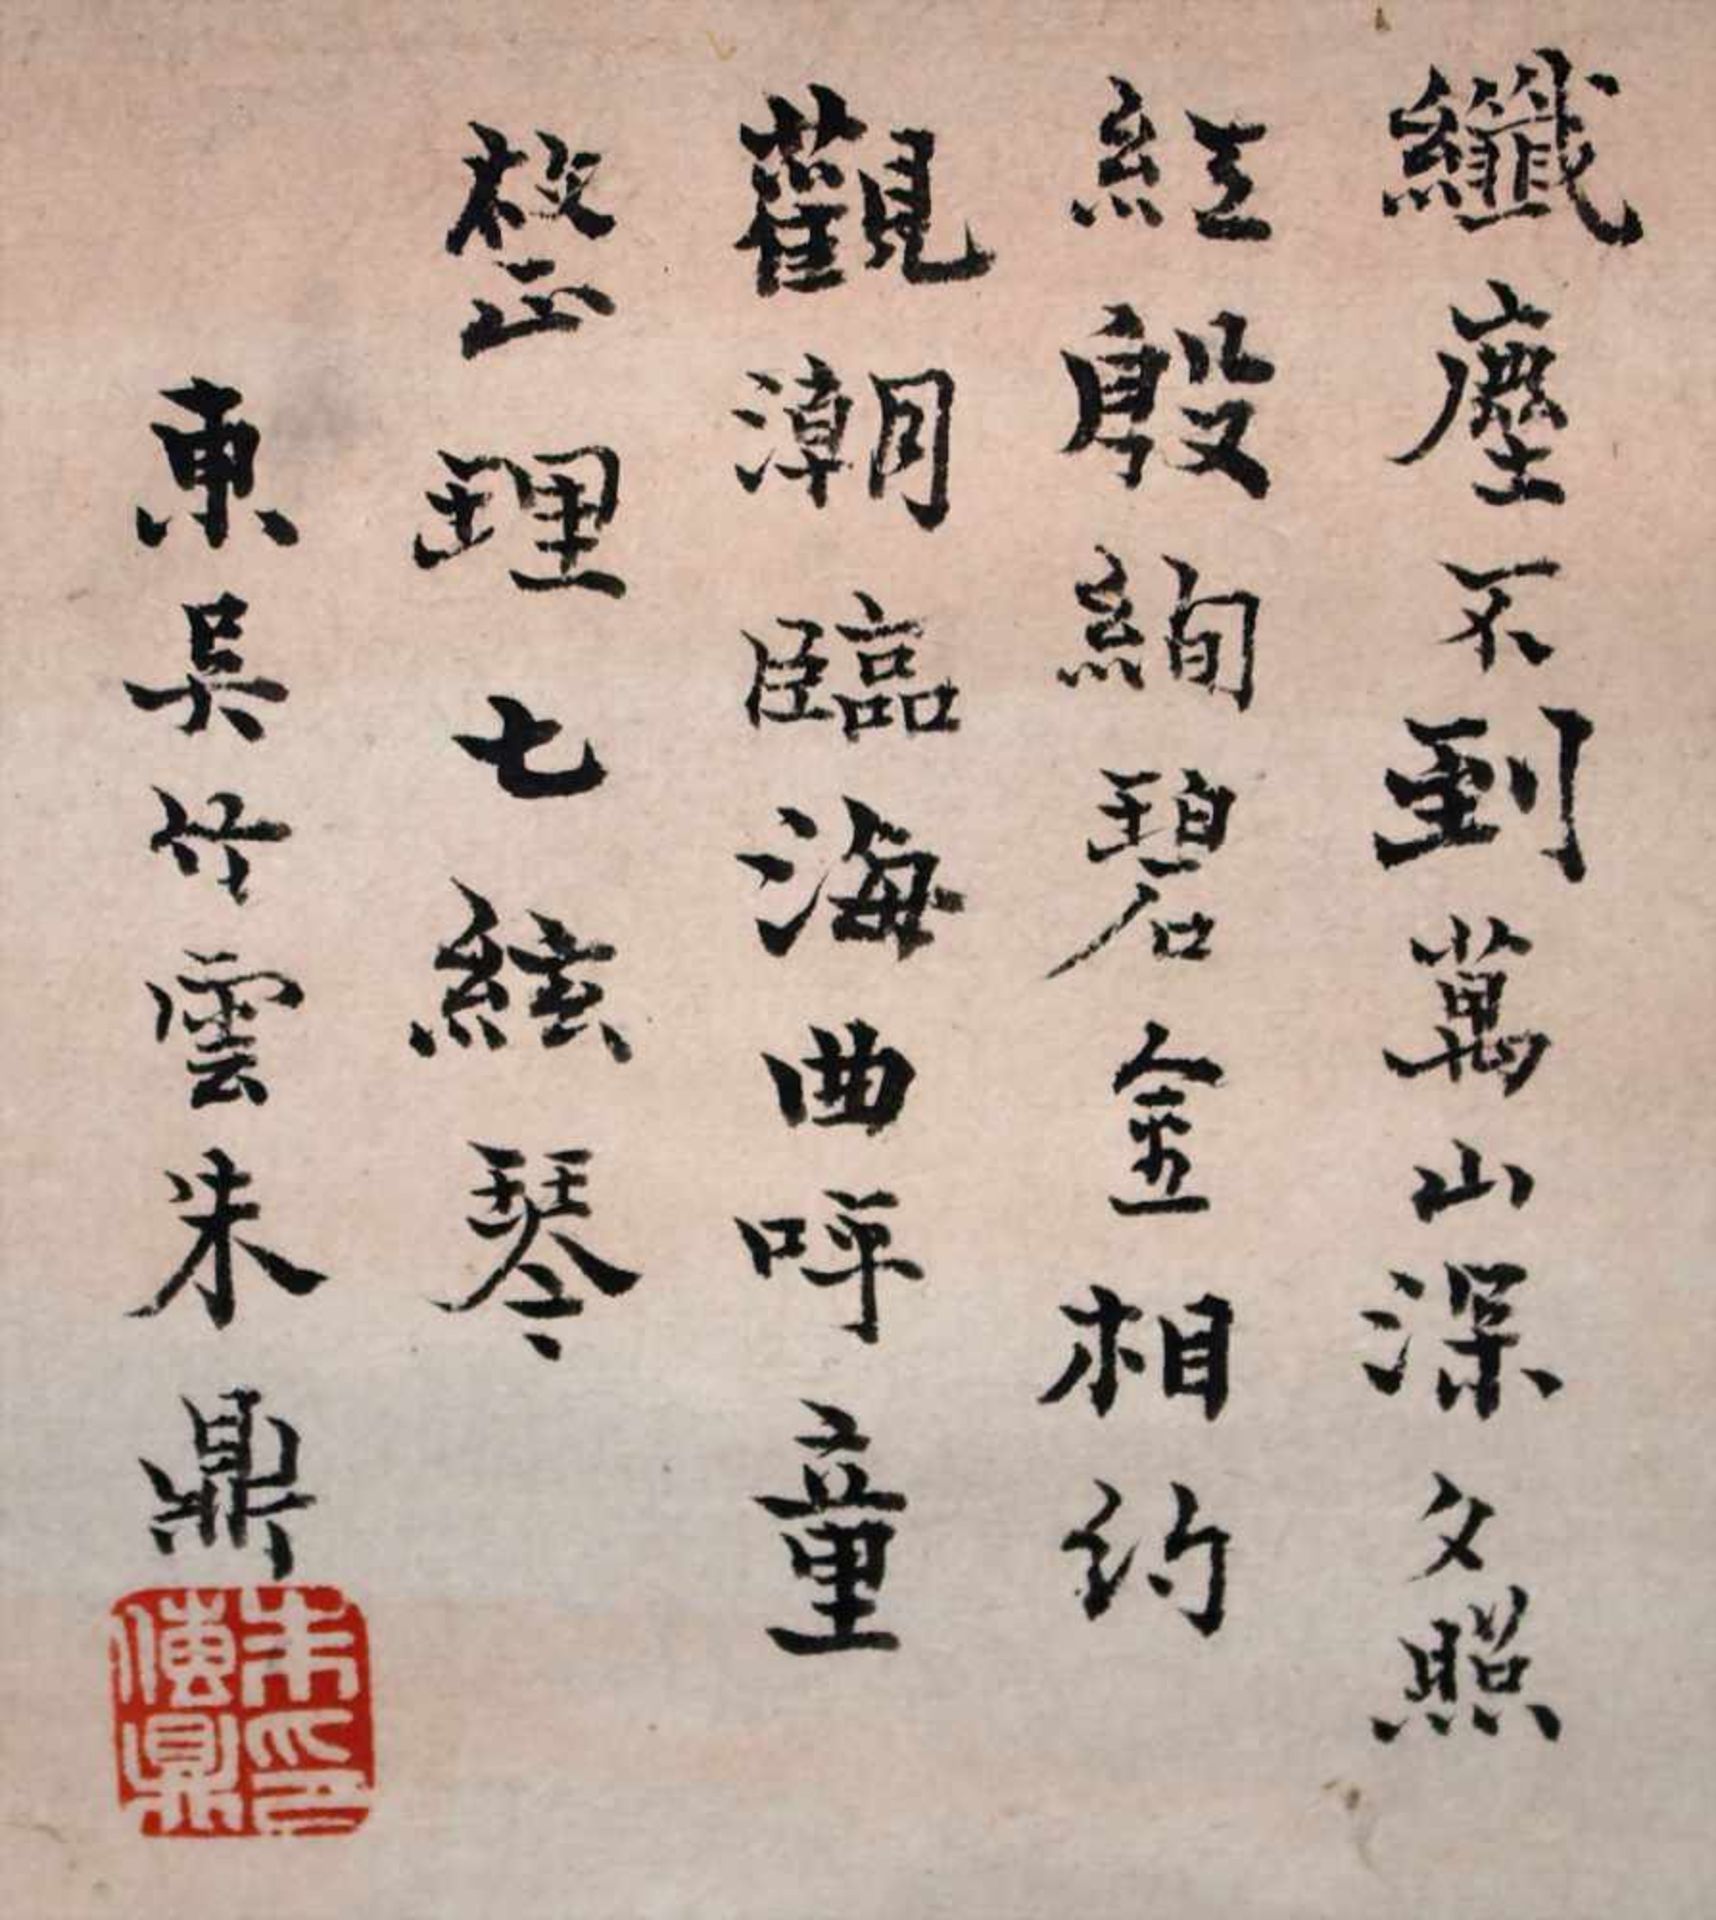 纖塵不到萬山深夕照
紅殷絢碧金相約
觀潮臨海曲呼童
整理七絃琴
東吳竹雲朱鼎
朱印
傳鼎